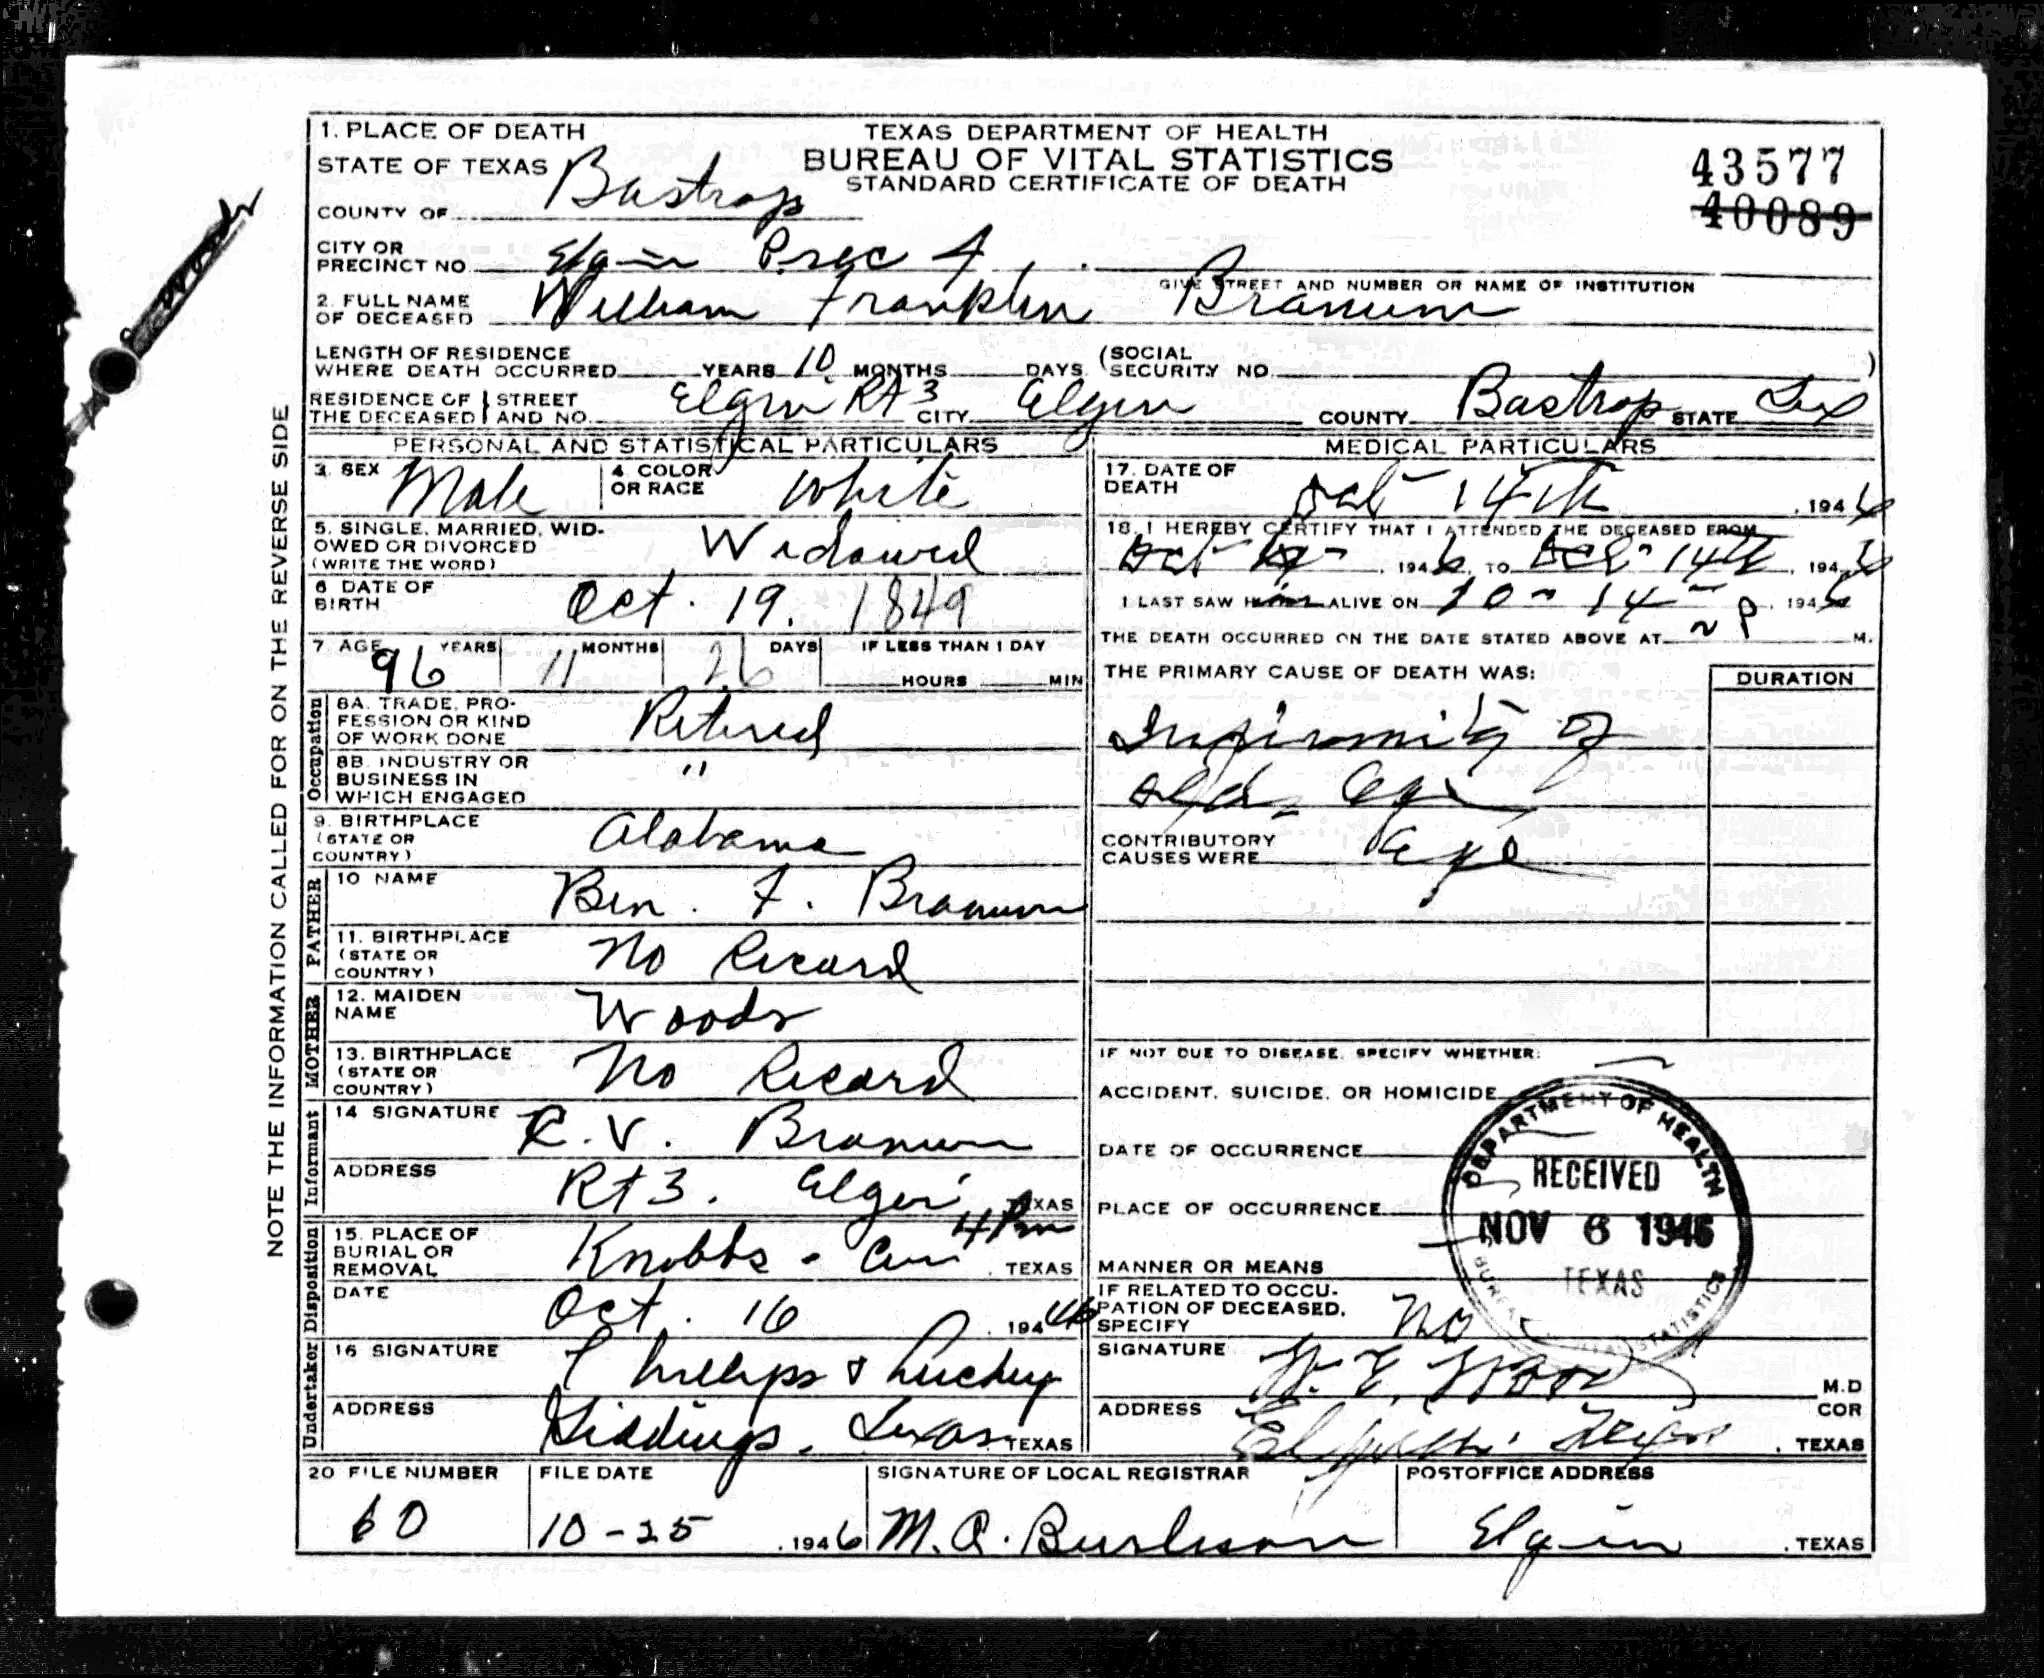 1. PLACE OF DEATH
TEXAS DEPARTMENT OF HEALTH
BUREAU OF VITAL STATISTICS
STANDARD CERTIFICATE OF DEATH
43577
40089
STATE OF TEXAS
COUNTY OF Bastrop
CITY OR PRECINCT NO Elgin Prec 4
GIVE STREET AND NUMBER OR NAME OF INSTITUTION
2. FULL NAME OF DECEASED William Franklin Branum
LENGTH OF RESIDENCE WHERE DEATH OCCURRED YEARS 10 MONTHS DAYS (SOCIAL SECURITY NO. )
RESIDENCE OF THE DECEASED STREET AND NO. Elgin Rt 3 CITY Elgin COUNTY Bastrop STATE Tex
PERSONAL AND STATISTICAL PARTICULARS
3. SEX Male 4. COLOR OR RACE White
5. SINGLE, MARRIED, WIDOWED OR DIVORCED (WRITE THE WORD) Widowed
6 DATE OF BIRTH Oct. 19. 1849
7 AGE 96 YEARS 11 MONTHS 26 DAYS IF LESS THAN 1 DAY HOURS MIN
Occupation
8A. TRADE, PROFESSION OR KIND OF WORK DONE Retired
8B. INDUSTRY OR BUSINESS IN WHICH ENGAGED "
9. BIRTHPLACE (STATE OR COUNTRY) Alabama
FATHER
10 NAME Ben. F. Branum
11. BIRTHPLACE (STATE OR COUNTRY) No Record
MOTHER
12. MAIDEN NAME Woods
13. BIRTHPLACE (STATE OR COUNTRY) No Record
Informant
14 SIGNATURE R.V. Branum
ADDRESS Rt 3. Elgin TEXAS
Disposition
15. PLACE OF BURIAL OR REMOVAL Knobbs - Cem 4 Pm . TEXAS
DATE Oct. 16 , 1946
Undertaker
16 SIGNATURE Phillips & Luckey
ADDRESS Giddings, Texas TEXAS
MEDICAL PARTICULARS
17. DATE OF DEATH Oct 14th , 1946
18. I HEREBY CERTIFY THAT I ATTENDED THE DECEASED FROM
Oct , 1946, TO Oct 14th , 1946
I LAST SAW Him ALIVE ON 10 - 14 , 1946
THE DEATH OCCURRED ON THE DATE STATED ABOVE AT P. M.
THE PRIMARY CAUSE OF DEATH WAS: DURATION
Infirmity of
old age
CONTRIBUTORY CAUSES WERE Age
IF NOT DUE TO DISEASE, SPECIFY WHETHER:
ACCIDENT, SUICIDE, OR HOMICIDE
DATE OF OCCURRENCE
PLACE OF OCCURRENCE
MANNER OR MEANS
IF RELATED TO OCCUPATION OF DECEASED, SPECIFY No
DEPARTMENT OF HEALTH
RECEIVED
NOV 6 1946
TEXAS
SIGNATURE W. E. Wood M.D COR
ADDRESS , TEXAS
20 FILE NUMBER 60
FILE DATE 10-25 , 1946
SIGNATURE OF LOCAL REGISTRAR M.A. Burleson
POSTOFFICE ADDRESS Elgin , TEXAS
NOTE THE INFORMATION CALLED FOR ON THE REVERSE SIDE